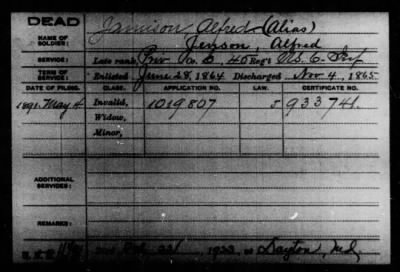 DEAD
NAME OF SOLDIER: Jamison Alfred (Alias)
Jenson, Alfred
SERVICE: Late rank, Co. 40 Reg't U.S.C. Inf
TERM OF SERVICE: Enlisted June 28, 1864 Discharged Nov 4, 1865
DATE OF FILING. CLASS. APPLICATION NO. LAW. CERTIFICATE NO.
1891 May 4 Invalid, 1019807 933741.
Widow,
Minor,
ADDITIONAL SERVICES:
REMARKS:
1933, at Dayton,